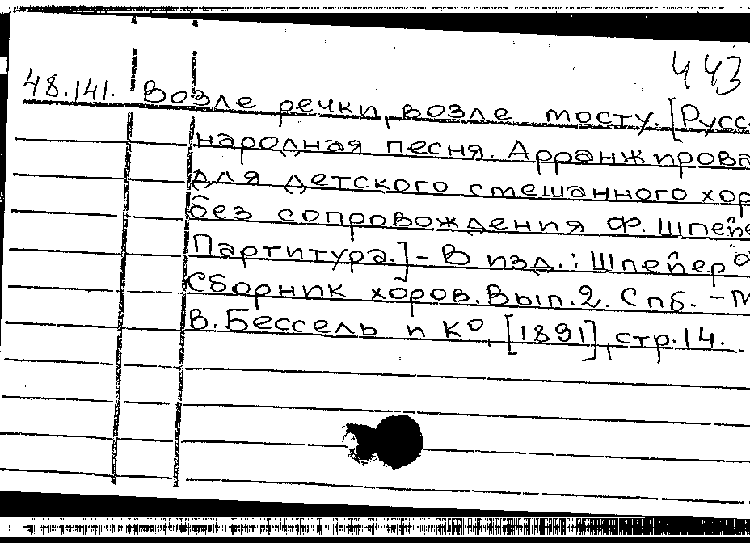 443
48.141. Возле речки, возле мосту. [Русс
народная песня. Арранжирова
для детского смешанного хор
без сопровождения Ф. Шпейе
Партитура.] - В изд.: Шпейер Ф
Сборник хоров. Вып. 2. Спб. - М
В. Бессель и К°, [1891], стр. 14.